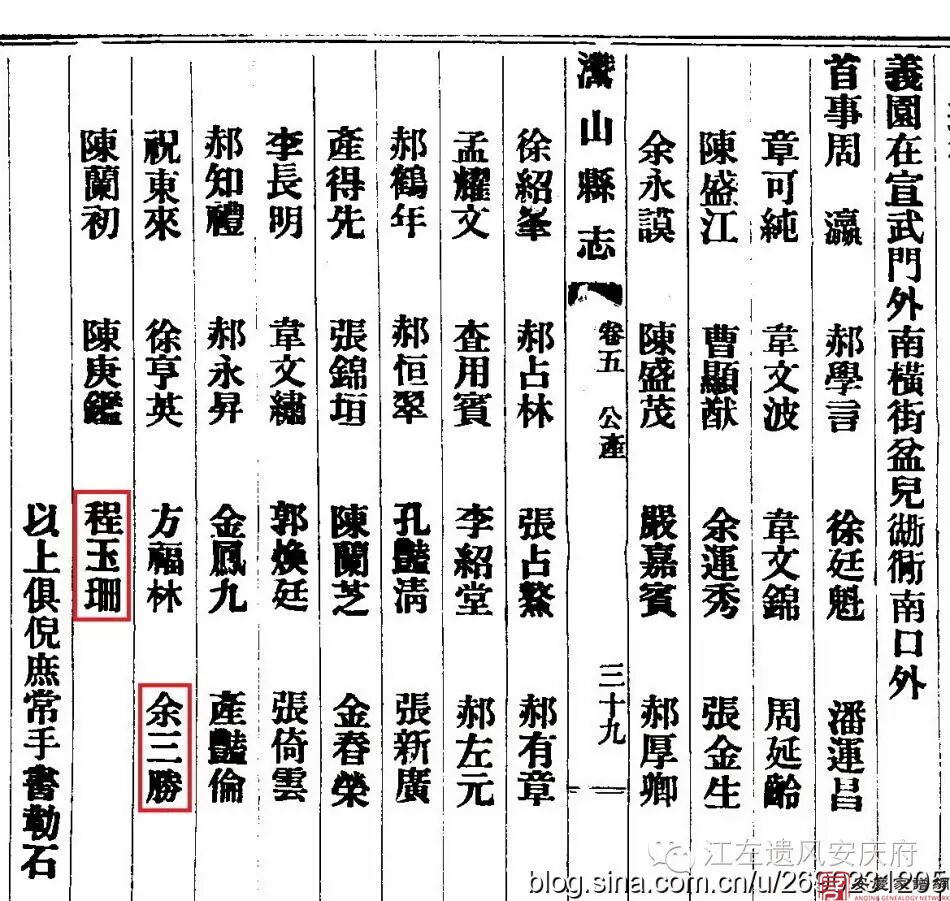 義園在宣武門外南橫街盆兒衚衕南口外
首事周 瀛 郝學言 徐廷魁 潘運昌
章可純 韋文波 韋文錦 周延齡
陳盛江 曹顯猷 余運秀 張金生
余永謨 陳盛茂 嚴嘉賓 郝厚卿
灊山縣志 卷五 公產 三十九
徐紹峯 郝占林 張占鰲 郝有章
孟耀文 查用賓 李紹堂 郝左元
郝鶴年 郝恒翠 孔豔清 張新廣
產得先 張錦垣 陳蘭芝 金春榮
李長明 韋文繡 郭煥廷 張倚雲
郝知禮 郝永昇 金鳳九 產豔倫
祝東來 徐亨英 方福林 余三勝
陳蘭初 陳庚鑑 程玉珊
以上俱倪庶常手書勒石
江左遗风安庆府
blog.sina.com.cn/u/26
安慶家譜網
ANQING GENEALOGY NETWORK